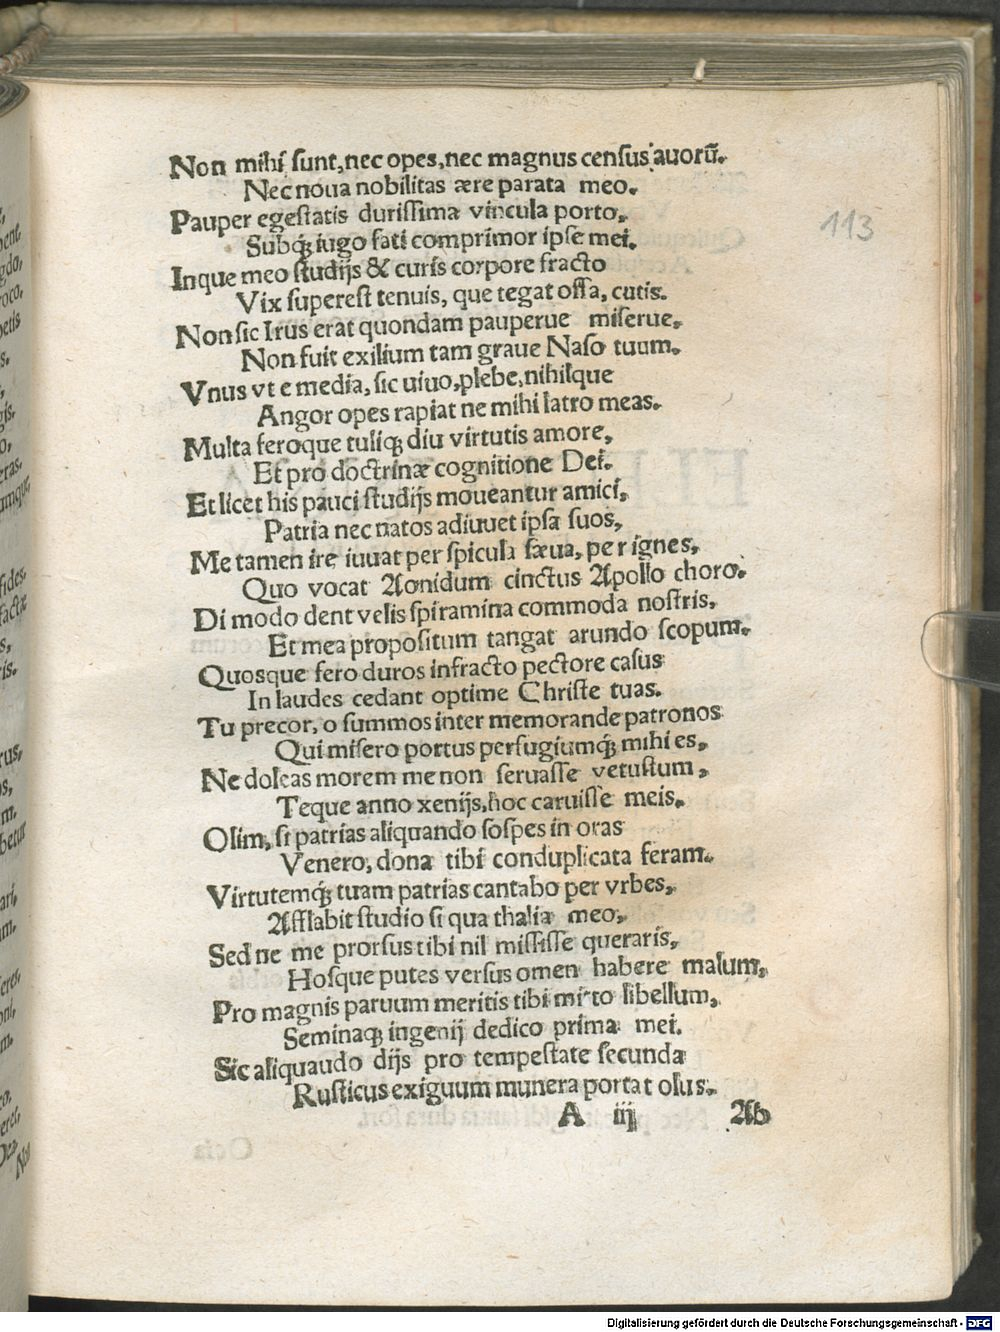 Non mihi sunt, nec opes, nec magnus census auorū.
Nec noua nobilitas ære parata meo.
Pauper egestatis durissima vincula porto,
Subq; iugo fati comprimor ipse mei.
Inque meo studijs & curis corpore fracto
Vix superest tenuis, que tegat ossa, cutis.
Non sic Irus erat quondam pauperue miserue,
Non fuit exilium tam graue Naso tuum.
Vnus vt e media, sic uiuo, plebe, nihilque
Angor opes rapiat ne mihi latro meas.
Multa feroque tuliq; diu virtutis amore,
Et pro doctrinæ cognitione Dei.
Et licet his pauci studijs moueantur amici,
Patria nec natos adiuuet ipsa suos,
Me tamen ire iuuat per spicula sæua, per ignes,
Quo vocat Aonidum cinctus Apollo choro.
Di modo dent velis spiramina commoda nostris,
Et mea propositum tangat arundo scopum.
Quosque fero duros infracto pectore casus
In laudes cedant optime Christe tuas.
Tu precor, o summos inter memorande patronos
Qui misero portus perfugiumq; mihi es,
Ne doleas morem me non seruasse vetustum,
Teque anno xenijs, hoc caruisse meis.
Olim, si patrias aliquando sospes in oras
Venero, dona tibi conduplicata feram.
Virtutemq; tuam patrias cantabo per vrbes,
Afflabit studio si qua thalia meo,
Sed ne me prorsus tibi nil misisse queraris,
Hosque putes versus omen habere malum,
Pro magnis paruum meritis tibi mitto libellum,
Seminaq; ingenij dedico prima mei.
Sic aliquando dijs pro tempestate secunda
Rusticus exiguum munera portat olus.
A iij Ab
113
Digitalisierung gefördert durch die Deutsche Forschungsgemeinschaft - DFG